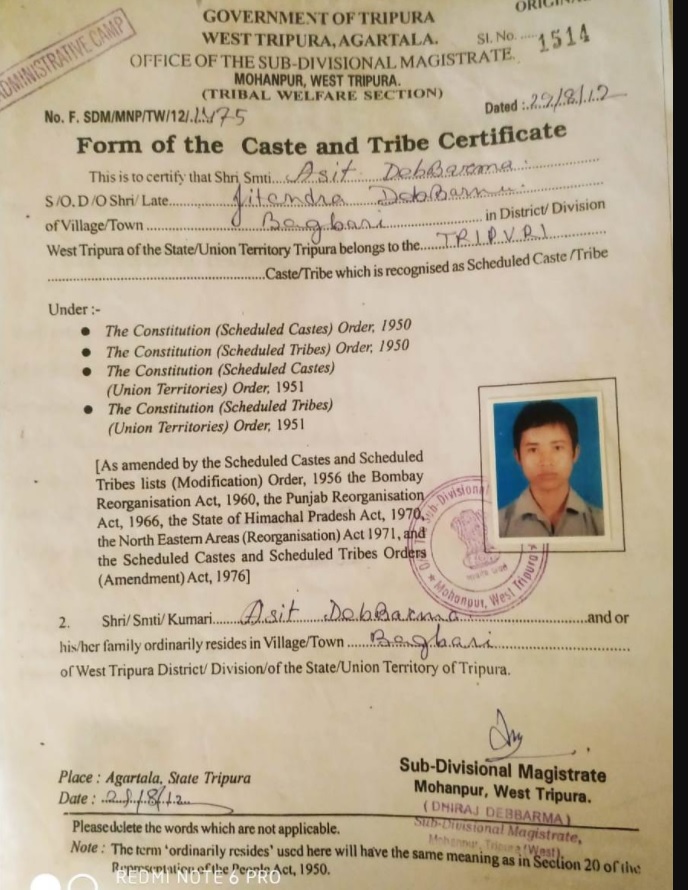 ADMINISTRATIVE CAMP
ORIGINAL
GOVERNMENT OF TRIPURA
WEST TRIPURA, AGARTALA.
Sl. No. ....1514
OFFICE OF THE SUB-DIVISIONAL MAGISTRATE.
MOHANPUR, WEST TRIPURA.
(TRIBAL WELFARE SECTION)
No. F. SDM/MNP/TW/12/.1475
Dated :.29/8/12
Form of the Caste and Tribe Certificate
This is to certify that Shri Smti....Asit DebBarma.
S/O. D/O Shri/ Late.........Jitendra DebBarma.
of Village/Town ..........Bagbari .......... in District/ Division
West Tripura of the State/Union Territory Tripura belongs to the.....TRIPURI
..........Caste/Tribe which is recognised as Scheduled Caste /Tribe
Under :-
● The Constitution (Scheduled Castes) Order, 1950
● The Constitution (Scheduled Tribes) Order, 1950
● The Constitution (Scheduled Castes)
(Union Territories) Order, 1951
● The Constitution (Scheduled Tribes)
(Union Territories) Order, 1951
[As amended by the Scheduled Castes and Scheduled
Tribes lists (Modification) Order, 1956 the Bombay
Reorganisation Act, 1960, the Punjab Reorganisation
Act, 1966, the State of Himachal Pradesh Act, 1970,
the North Eastern Areas (Reorganisation) Act 1971, and
the Scheduled Castes and Scheduled Tribes Orders
(Amendment) Act, 1976]
Sub-Divisional
★ Mohanpur, West Tripura
2. Shri/ Smti/ Kumari......Asit DebBarma..........and or
his/her family ordinarily resides in Village/Town ......Bagbari..........
of West Tripura District/ Division/of the State/Union Territory of Tripura.
Sub-Divisional Magistrate
Mohanpur, West Tripura.
(DHIRAJ DEBBARMA)
Sub-Divisional Magistrate,
Mohanpur, Tripura (West)
Place : Agartala, State Tripura
Date : ..29/8/12
Please delete the words which are not applicable.
Note : The term 'ordinarily resides' used here will have the same meaning as in Section 20 of the
Representation of the People Act, 1950.
REDMI NOTE 6 PRO